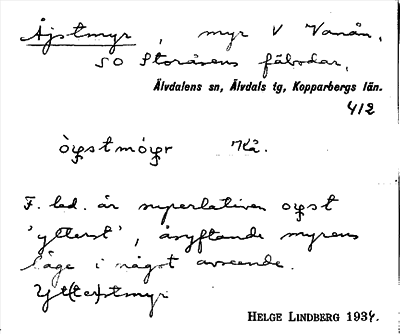 Åjstmyr, myr V Vanån,
SO Storåsens fäbodar,
Älvdalens sn, Älvdals tg, Kopparbergs län.
412
Kå.
F. led. är superlativen
'ytterst', åsyftande myrens
läge i något avseende.
Yt(ter)stmyr
HELGE LINDBERG 1934.